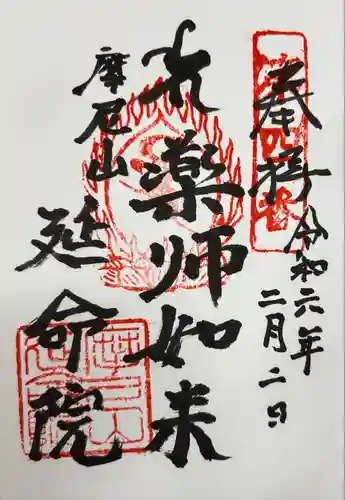 奉拝
令和六年
二月二日
薬师如来
摩尼山
延命院